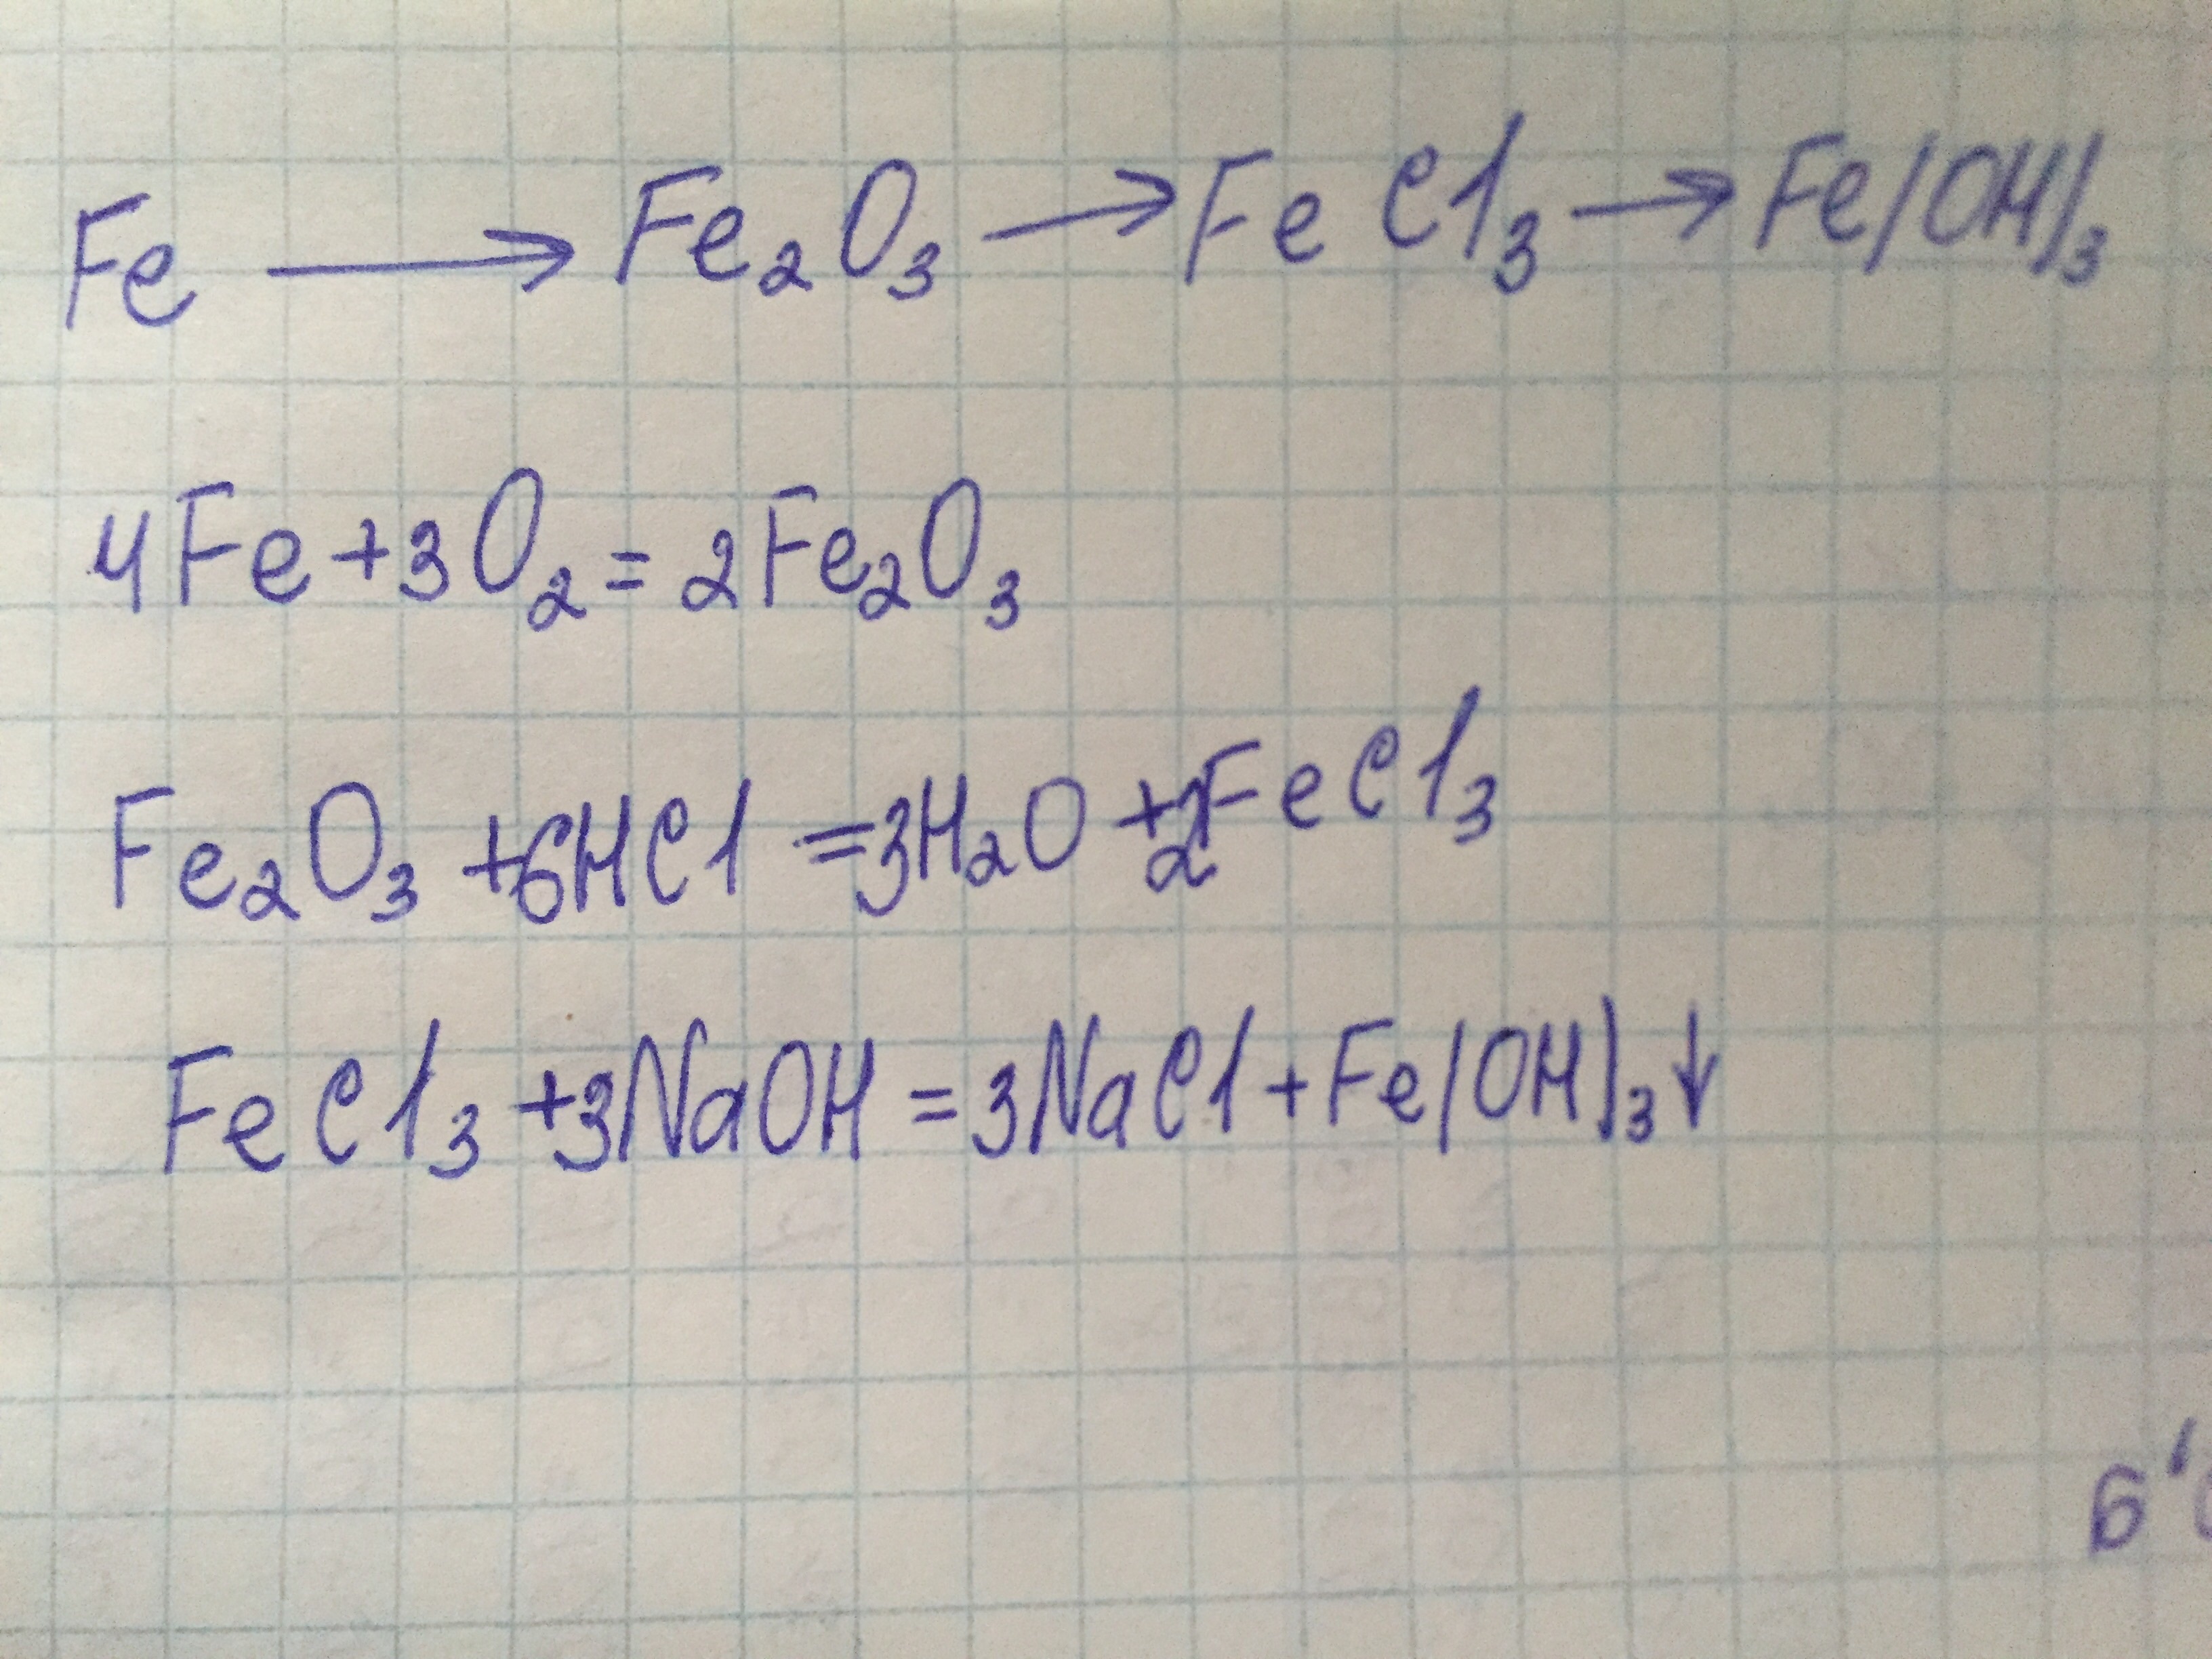 Fe → Fe₂O₃ → FeCl₃ → Fe(OH)₃
4Fe+3O₂=2Fe₂O₃
Fe₂O₃+6HCl=3H₂O+2FeCl₃
FeCl₃+3NaOH=3NaCl+Fe(OH)₃↓